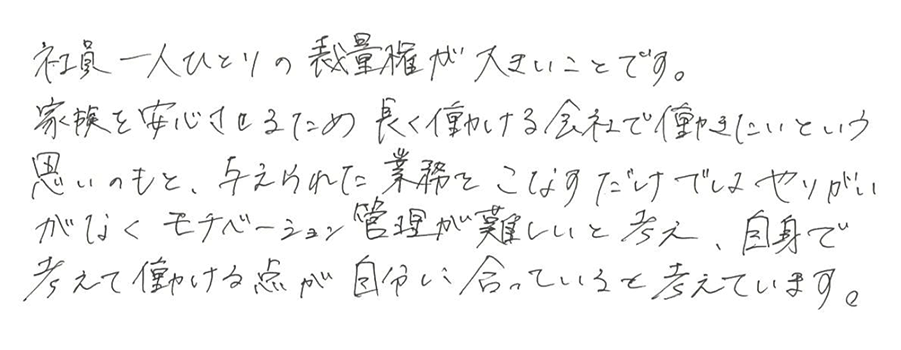 社員一人ひとりの裁量権が大きいことです。
家族を安心させるため長く働ける会社で働きたいという
思いのもと、与えられた業務をこなすだけではやりがい
がなくモチベーション管理が難しいと考え、自身で
考えて働ける点が自分に合っていると考えています。